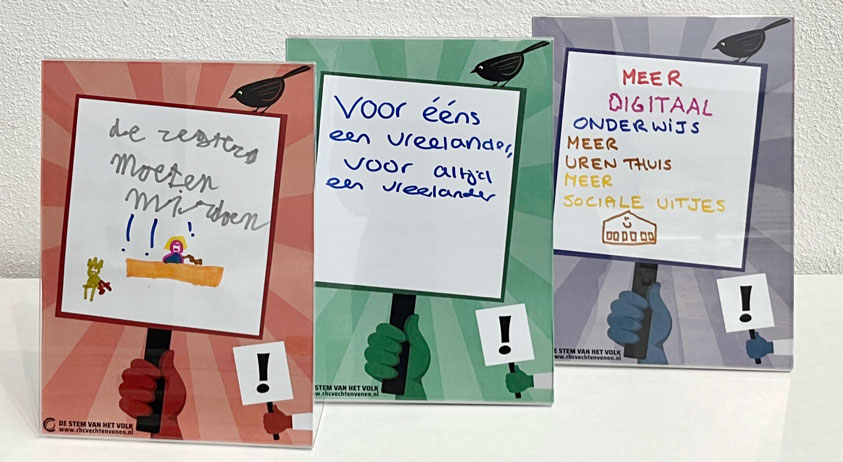 de
moeten
! ! !
!
DE STEM VAN HET VOLK
www.rhcvechtenvenen.nl
Voor ééns
een vreelander,
voor altijd
een vreelander
!
STEM VAN HET VOLK
www.rhcvechtenvenen.nl
MEER
DIGITAAL
ONDERWIJS
MEER
UREN THUIS
MEER
SOCIALE UITJES
!
DE STEM VAN HET VOLK
www.rhcvechtenvenen.nl